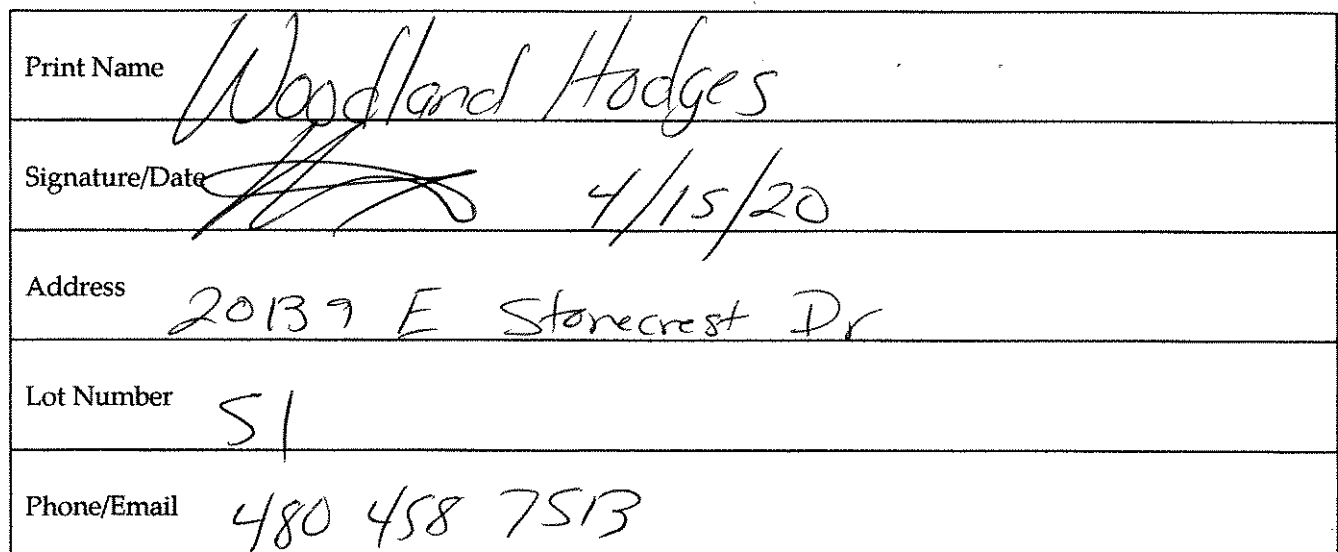 Print Name Woodland Hodges
Signature/Date 4/15/20
Address 20139 E Stonecrest Dr
Lot Number 51
Phone/Email 480 458 7513